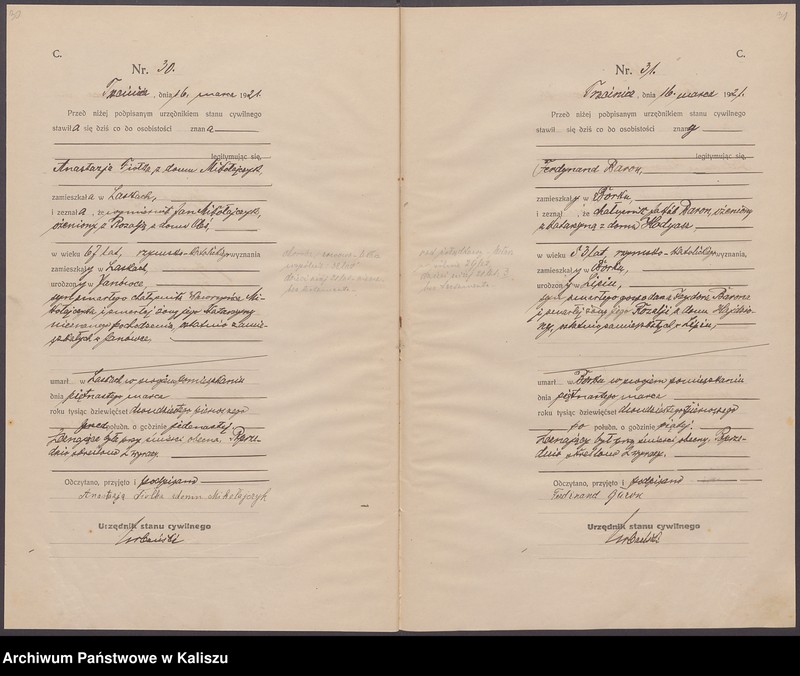 30
C.
Nr. 30.
Trzcinica, dnia 16. marca 1921.
Przed niżej podpisanym urzędnikiem stanu cywilnego
stawiła się dziś co do osobistości znana
legitymując się,
Anastazja Giotka z domu Mikołajczyk,
zamieszkała w Laskach,
i zeznała, że Jan Mikołajczyk,
żeniony z Rozalją z domu
w wieku 67 lat, rzymsko-katolickiego wyznania
zamieszkały w Laskach,
urodzony w Janówce,
syn zmarłego chałupnika Wawrzyńca Mi-
kołajczyka i zmarłej żony jego Katarzyny
niewiadomego pochodzenia, ostatnio zamie-
szkałych w Janówce.
umarł w Laskach w swojem pomieszkaniu
dnia piętnastego marca
roku tysiąc dziewięćset dwudziestego pierwszego
przed połudn. o godzinie jedenastej.
Zeznająca była przy śmierci obecna. Poprze-
dnio skreślono 2 wyrazy.
Odczytano, przyjęto i podpisano
Anastazja domu Mikołajczyk
Urzędnik stanu cywilnego
31
C.
Nr. 31.
Trzcinica, dnia 16. marca 1921.
Przed niżej podpisanym urzędnikiem stanu cywilnego
stawił się dziś co do osobistości znany
legitymując się,
Ferdynand Baron,
zamieszkały w Borku,
i zeznał, że chałupnik Baron, żeniony
z Katarzyną z domu
w wieku 53 lat, rzymsko-katolickiego wyznania,
zamieszkały w Borku,
urodzony w Lipiu,
syn zmarłego gospodarza Izydora Barona
i zmarłej żony jego Rozalji z domu
ostatnio zamieszkałych w Lipiu,
umarł w Borku w swojem pomieszkaniu
dnia piętnastego marca
roku tysiąc dziewięćset dwudziestego pierwszego
po połudn. o godzinie piątej.
Zeznający był przy śmierci obecny. Poprze-
dnio skreślono 2 wyrazy.
Odczytano, przyjęto i podpisano
Ferdinand Baron
Urzędnik stanu cywilnego
Archiwum Państwowe w Kaliszu